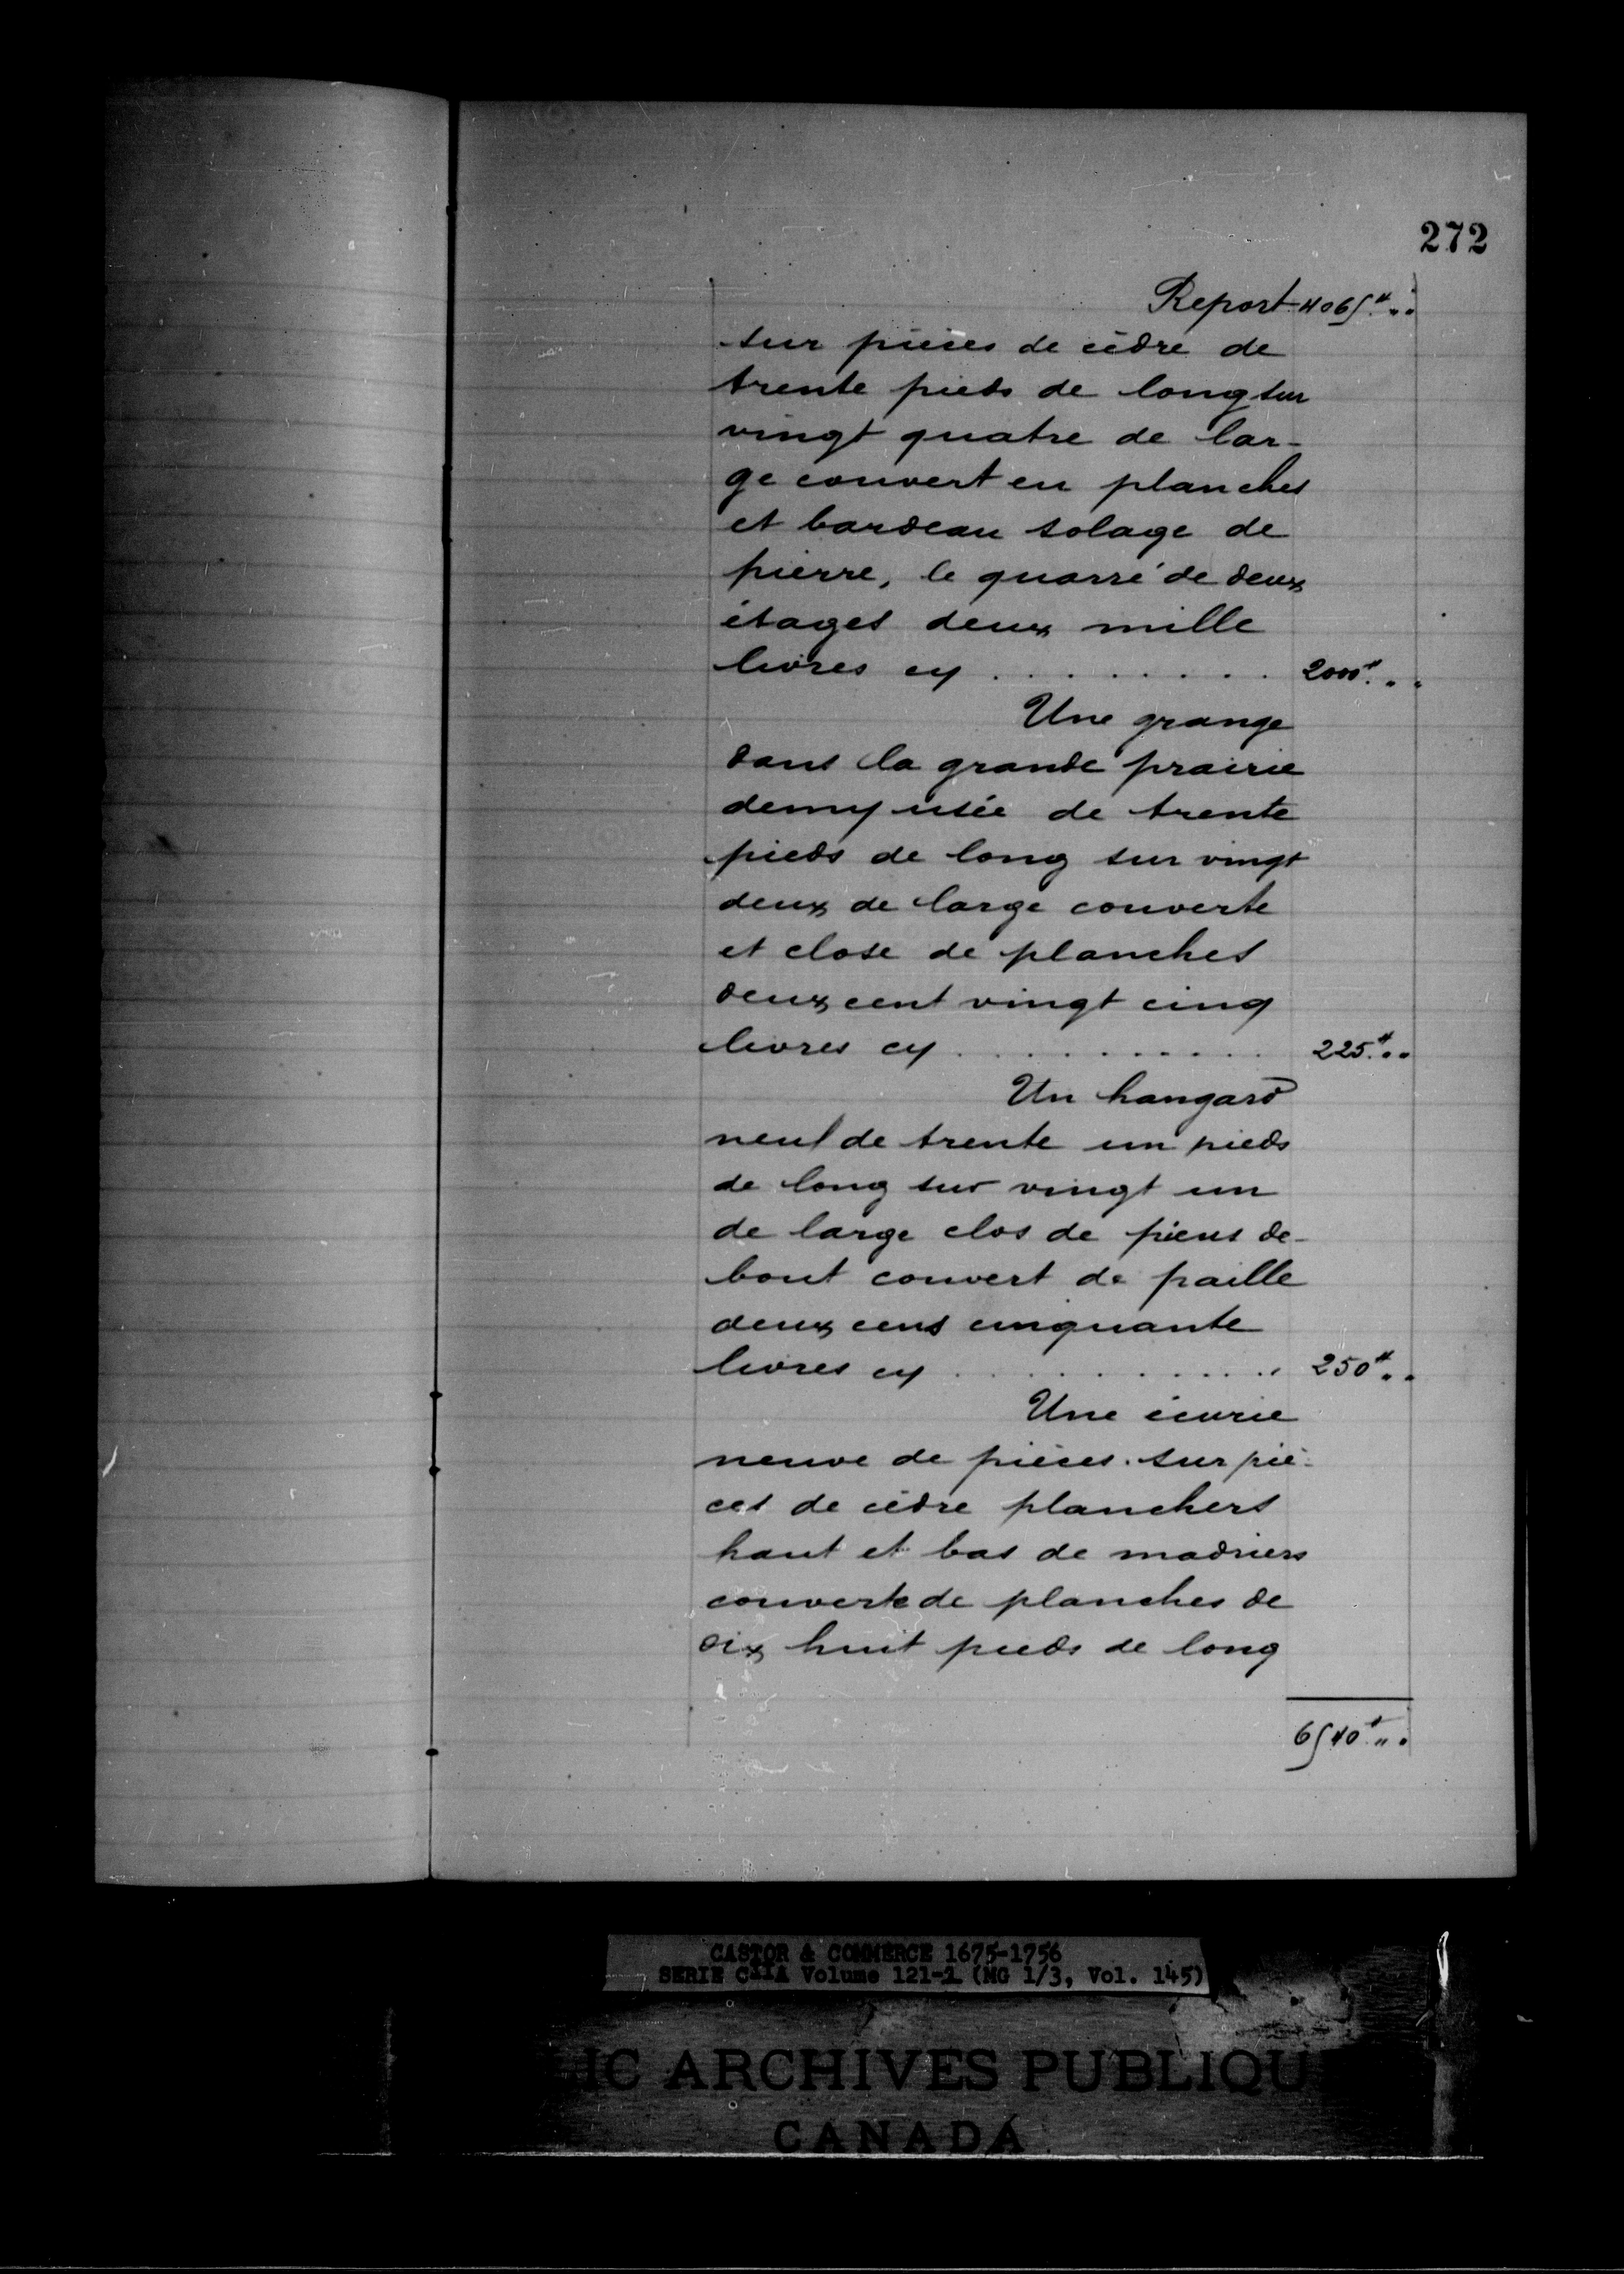 272
Report 4065# " "
sur pièces de cèdre de
trente pieds de long sur
vingt quatre de lar-
ge couvert en planches
et bardeau solage de
pierre, le quarré de deux
étages deux mille
livres cy . . . . . . . . . 2000# " "
Une grange
dans la grande prairie
demy usée de trente
pieds de long sur vingt
deux de large couverte
et close de planches
deux cent vingt cinq
livres cy . . . . . . . . . . 225# " "
Un hangard
neuf de trente un pieds
de long sur vingt un
de large clos de pieux de-
bout couvert de paille
deux cens cinquante
livres cy . . . . . . . . . . 250# " "
Une écurie
neuve de pièces sur piè-
ces de cèdre planchers
haut et bas de madriers
couverte de planches de
dix huit pieds de long
6540# " "
CASTOR & COMMERCE 1675-1756
SERIE C11A Volume 121-1 (MG 1/3, Vol. 145)
IC ARCHIVES PUBLIQU
CANADA